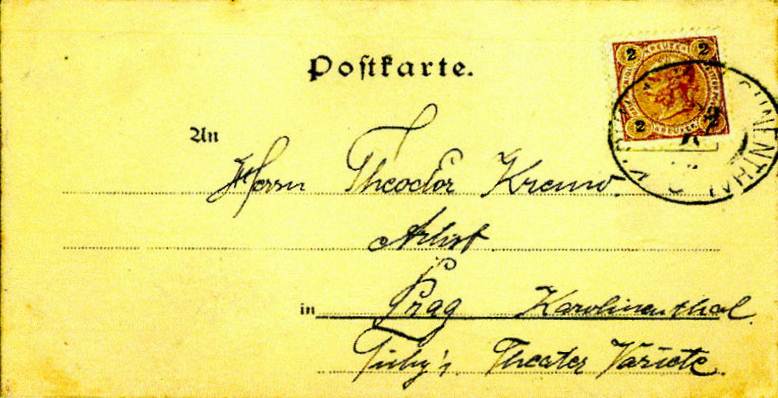 Postkarte.
2 KREUZER 2
2 KREUZER 2
An
Herrn Theodor Kremo.
Artist
in Prag Karolinenthal.
Tichy's Theater Variete.